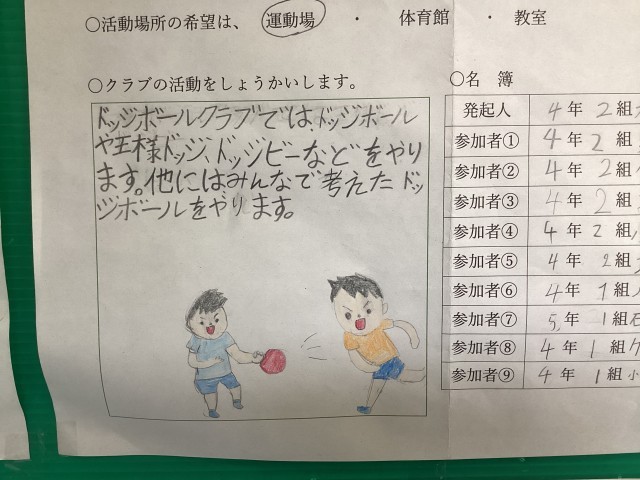 ○活動場所の希望は、 運動場 ・ 体育館 ・ 教室
○クラブの活動をしょうかいします。
ドッジボールクラブでは、ドッジボール
や王様ドッジ、ドッジビーなどをやり
ます。他にはみんなで考えたドッ
ジボールをやります。
○名 簿
発起人 4年 2組
参加者① 4年 2組
参加者② 4年 2組
参加者③ 4年 2組
参加者④ 4年 2組
参加者⑤ 4年 2組
参加者⑥ 4年 1組
参加者⑦ 5年 1組石
参加者⑧ 4年 1組
参加者⑨ 4年 1組小